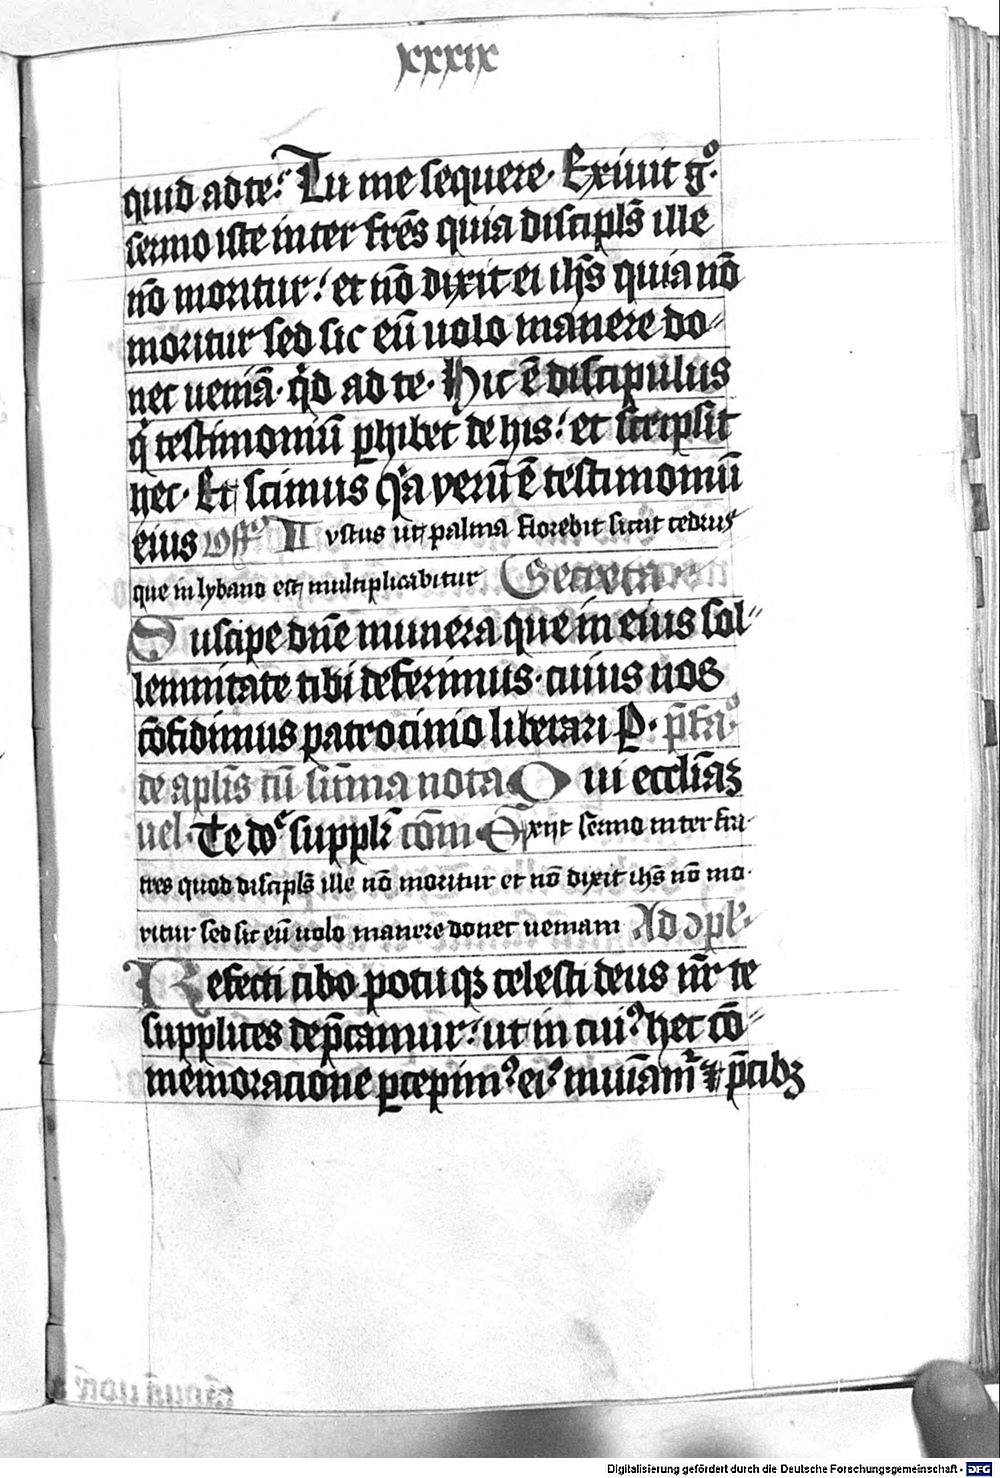 xxxix
quid ad te? Tu me sequere. Exiuit g°.
sermo iste inter frēs quia discipls̄ ille
nō moritur: et nō dixit ei ihs̄ quia nō
moritur sed sic eū uolo manere do-
nec ueniā. qͥd ad te. Hic ē discipulus
qͥ testimoniū ꝑhibet de his: et scripsit
hec. Et scimus qͣa verū ē testimoniū
eius Off° Iustus ut palma florebit sicut cedrus
que in lybano est multiplicabitur Secreta
Suscipe dn̄e munera que in eius sol-
lemnitate tibi deferimus. cuius nos
cōfidimus patrocinio liberari P. p̄fa°
de aplīs cū sūma nota Qui eccliāꝫ
uel. Te do͛ suppl̄r cōm Exijt sermo inter fra-
tres quod discipls̄ ille nō moritur et nō dixit ihs̄ nō mo-
ritur sed sic eū uolo manere donec ueniam Ad ↄpl̄.
Refecti cibo potuqꝫ celesti deus nr̄ te
supplices dep̄camur: ut in cuiꝰ hec cō-
memoracione ꝑcepimꝰ eiꝰ muniamͬ ⁊ p̄cibꝫ
Digitalisierung gefördert durch die Deutsche Forschungsgemeinschaft - DFG